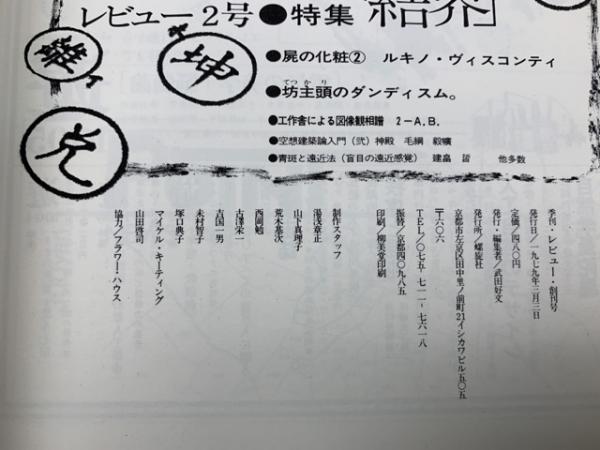 レビュー2号●特集「紹介」
離
坤
兌
●屍の化粧② ルキノ・ヴィスコンティ
てつかり
●坊主頭のダンディスム。
●工作舎による図像観相譜 2－A.B.
●空想建築論入門（弐）神殿 毛綱 毅曠
●青斑と遠近法（盲目の遠近感覚） 建畠 晢 他多数
季刊・レビュー・創刊号
発行日／一九七九年三月三日
定価／四八〇円
発行・編集者／武田好文
発行所／螺旋社
京都市左京区田中里ノ前町21イシカワビル五〇五
〒六〇六
TEL／〇七五－七一一－七六一八
振替／京都四〇九八五
印刷／柳美堂印刷
制作スタッフ
湯浅章正
山下真理子
荒木基次
西岡勉
古澤栄一
吉国一男
未村智子
塚口典子
マイケル・キーティング
山田啓司
協力／フラワー・ハウス